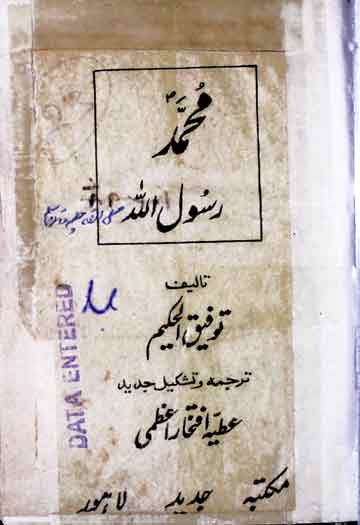 مُحمَّدؐ
رسُول اللہ صلی اللہ علیہ وآلہ وسلم
تالیف
توفیق الحکیم
ترجمہ و تشکیل جدید
عطیّہ افتخار اعظمی
مکتبہ جدید لاہور
DATA ENTERED